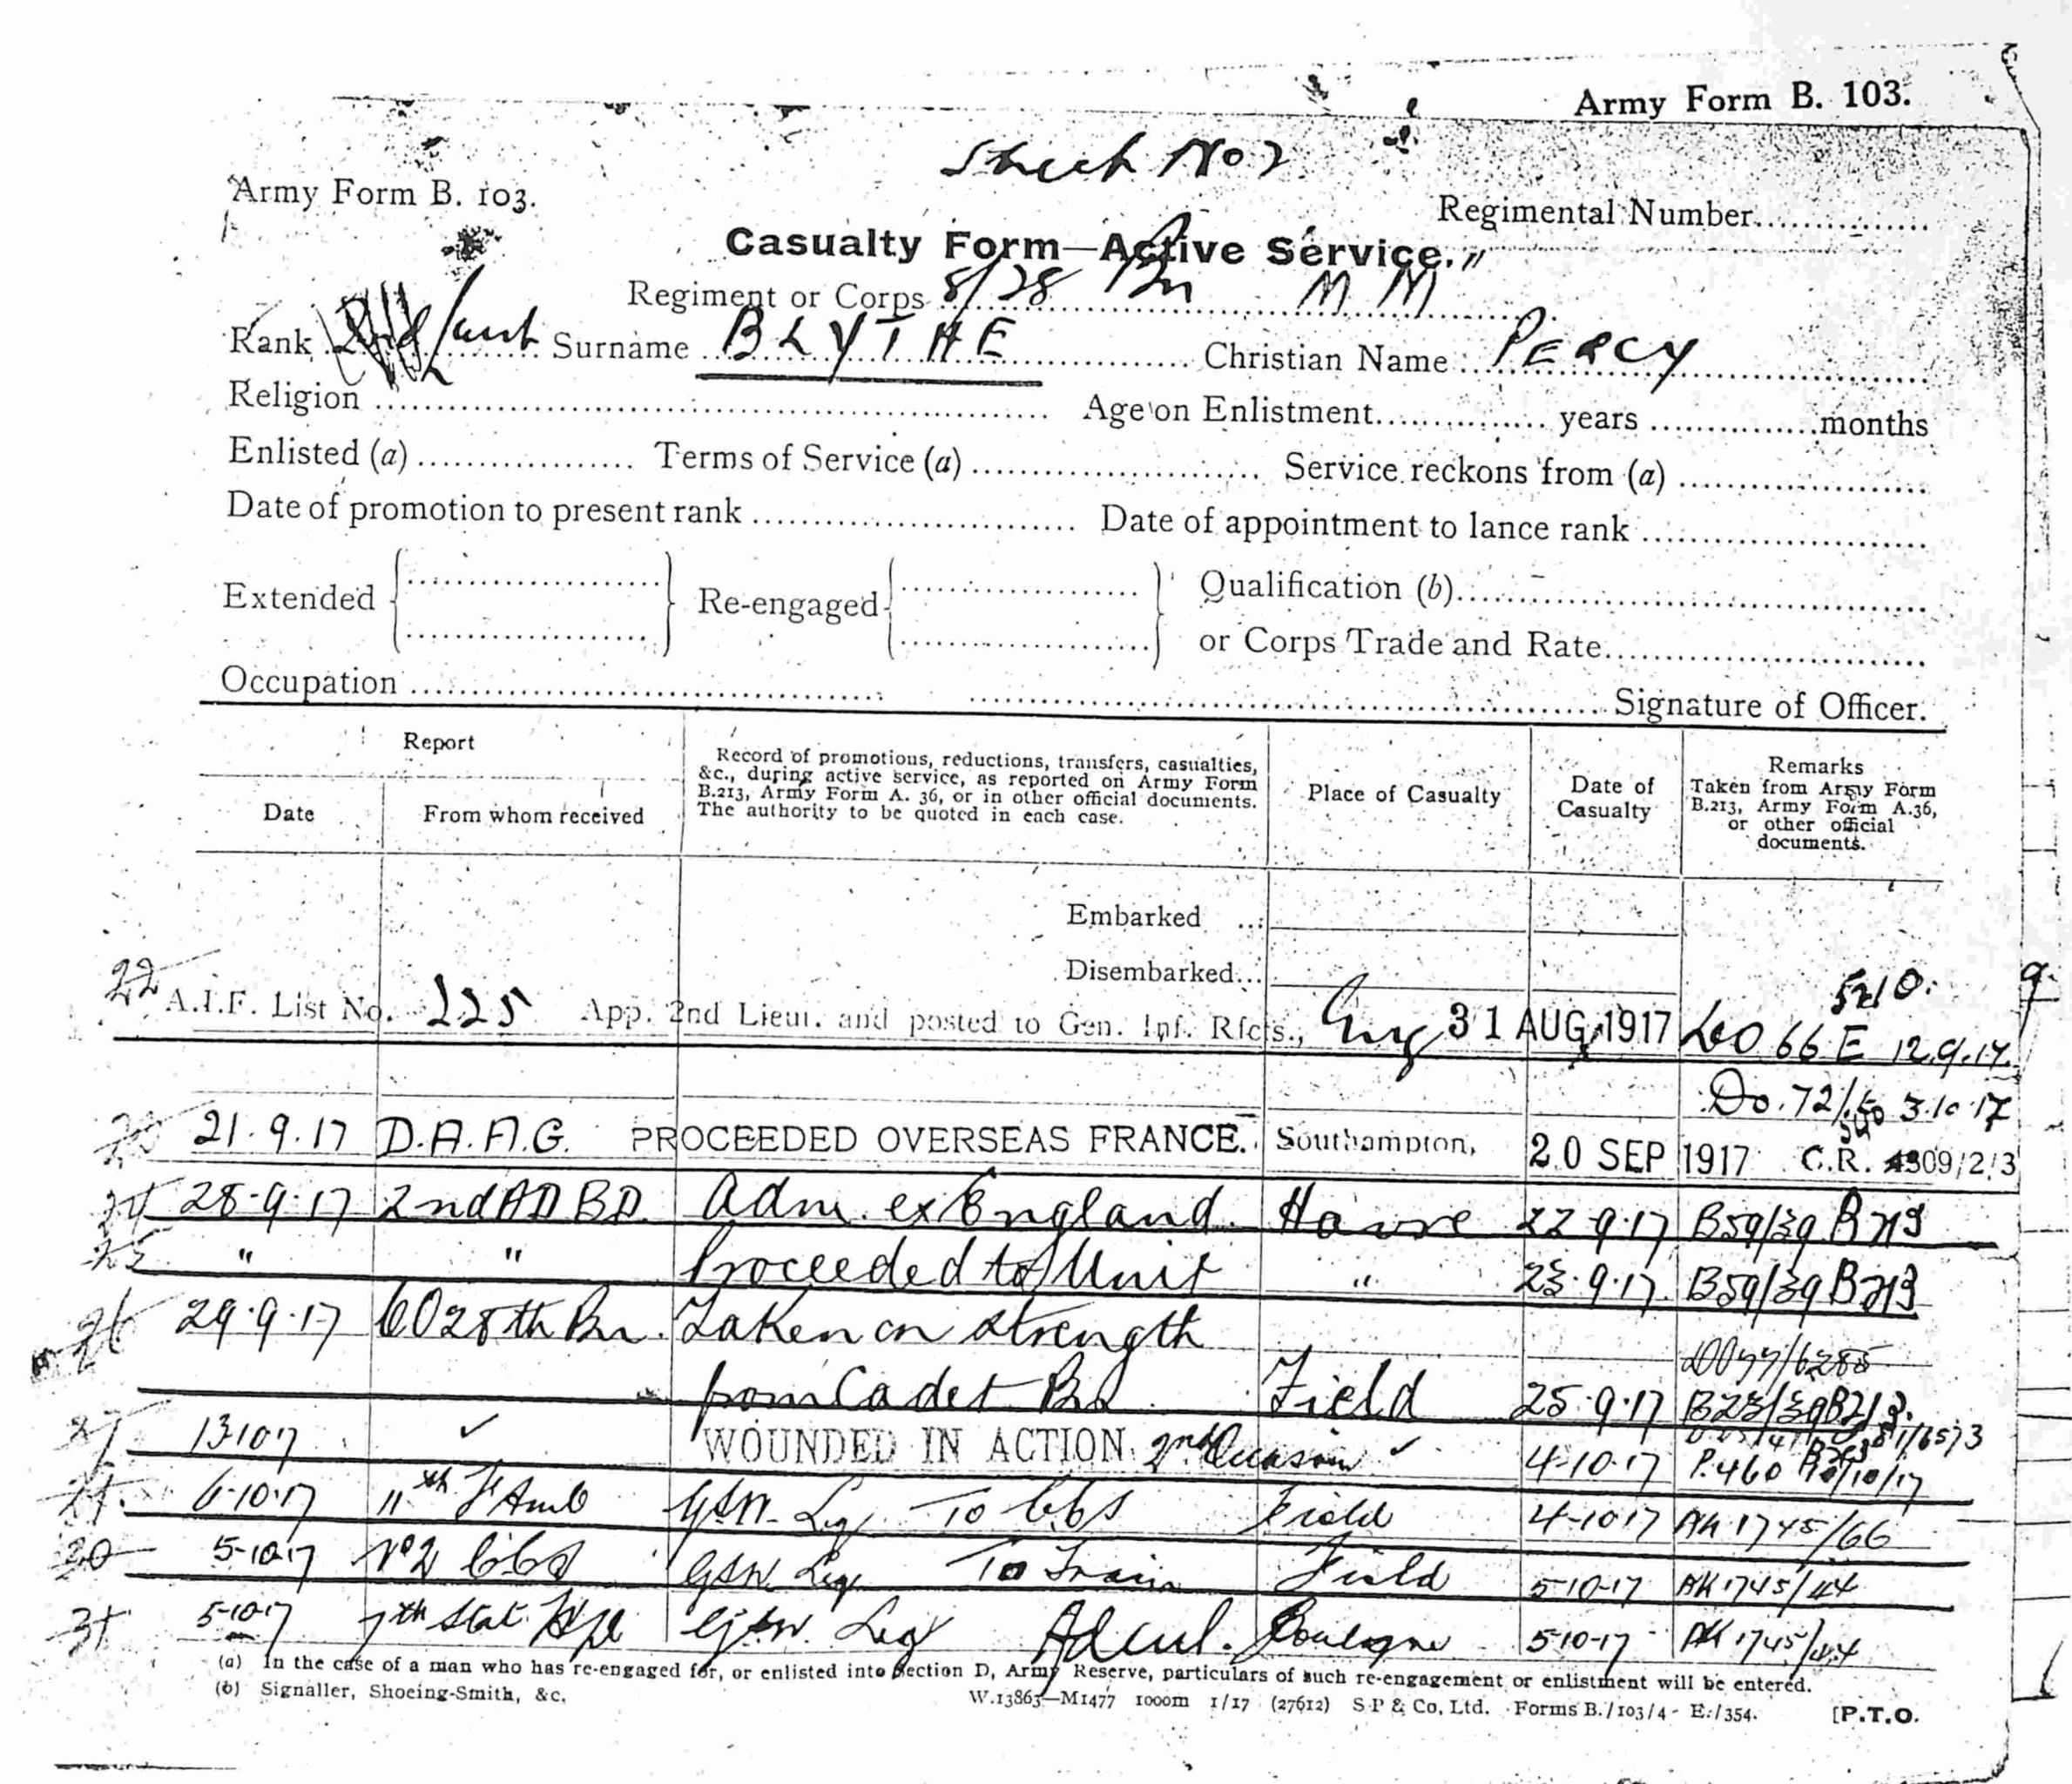 Army Form B. 103.
Sheet No 2
Army Form B. 103.
Regimental Number
Casualty Form—Active Service.
Regiment or Corps 8/28 Bn M M
Rank Lieut Surname BLYTHE Christian Name PERCY
Religion Age on Enlistment years months
Enlisted (a) Terms of Service (a) Service reckons from (a)
Date of promotion to present rank Date of appointment to lance rank
Extended Re-engaged Qualification (b)
or Corps Trade and Rate
Occupation Signature of Officer.
Report
Date
From whom received
Record of promotions, reductions, transfers, casualties,
&c., during active service, as reported on Army Form
B.213, Army Form A. 36, or in other official documents.
The authority to be quoted in each case.
Place of Casualty
Date of
Casualty
Remarks
Taken from Army Form
B.213, Army Form A.36,
or other official
documents.
Embarked
Disembarked
22 A.I.F. List No. 225 App. 2nd Lieut. and posted to Gen. Inf. Rfcts., Eng 31 AUG 1917 66 E 12.9.17.
Do. 72/ 3.10.17
21.9.17 D.A.A.G. PROCEEDED OVERSEAS FRANCE. Southampton, 20 SEP 1917 C.R. 4309/2/3
24 28.9.17 2nd ADBD. Adm. ex England. Havre 22.9.17 B59/39 B213
25 " " Proceeded to Unit " 23.9.17. B59/39 B213
26 29.9.17 CO 28th Bn. Taken on strength
from Cadet Bn Field 25.9.17 B23/39 B213.
27 13.10.17 ✓ WOUNDED IN ACTION 2nd Occasion ✓ 4.10.17 P.460 10/10/17
6.10.17 11th F Amb GSW. Leg To CCS Field 4.10.17 AK 1745/66
30 5.10.17 No 2 CCS GSW Leg To Train Field 5-10-17 AK 1745/44
31 5.10.17 7th Stat. Hpl GSW. Leg Adm. Boulogne 5-10-17 AK 1745/44
(a) In the case of a man who has re-engaged for, or enlisted into Section D, Army Reserve, particulars of such re-engagement or enlistment will be entered.
(b) Signaller, Shoeing-Smith, &c.
W.13863—M1477 1000m 1/17 (27612) S P & Co, Ltd. Forms B./103/4 - E./354.
[P.T.O.